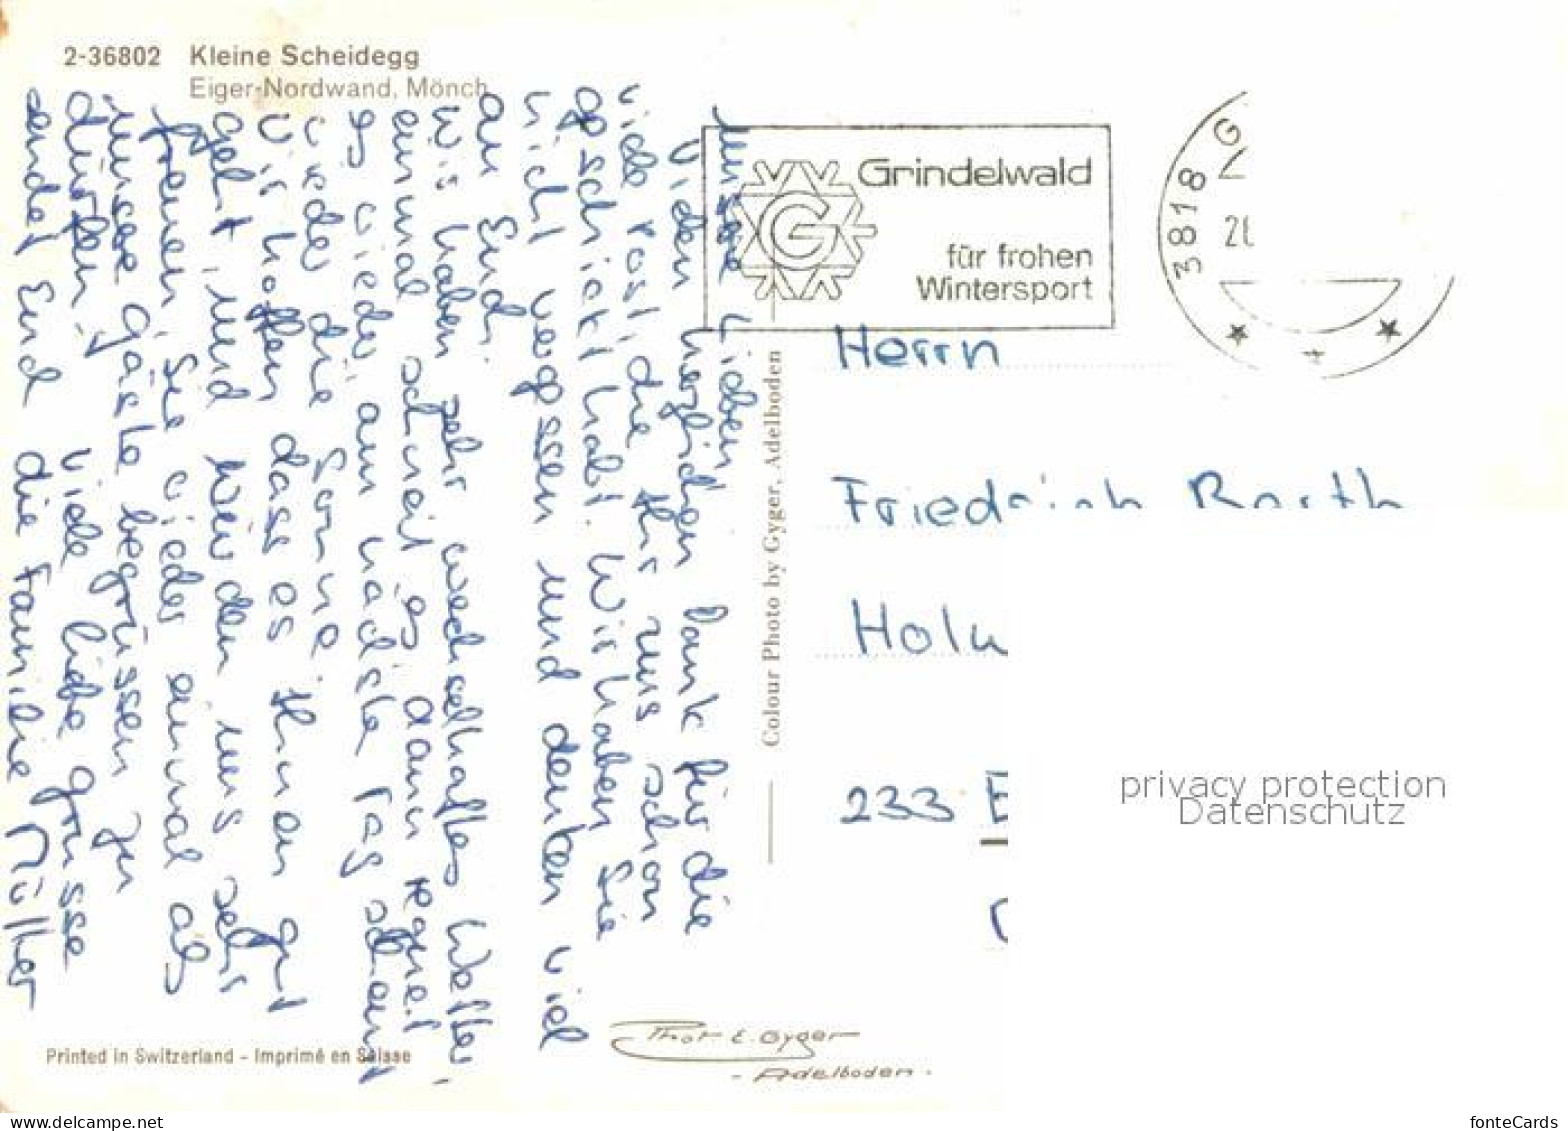 2-36802 Kleine Scheidegg
Eiger-Nordwand, Mönch
Unsere Lieben
Vielen herzlichen Dank für die
viele Post, die Ihr uns schon
geschickt habt. Wir haben Sie
nicht vergessen und denken viel
an Euch.
Wir haben sehr wechselhaftes Wetter,
einmal schneit es dann regnet
es wieder am nächste Tag scheint
wieder die Sonne.
Wir hoffen dass es Ihnen gut
geht, und würden uns sehr
freuen, Sie wieder einmal als
unsere Gäste begrüssen zu
dürfen. Viele liebe grüsse
sendet Euch die Familie Müller
Printed in Switzerland - Imprimé en Suisse
Colour Photo by Gyger, Adelboden
Phot E. Gyger
- Adelboden -
Grindelwald
G
für frohen
Wintersport
3818 G
Herrn
Friedrich
233
privacy protection
Datenschutz
www.delcampe.net
fonteCards